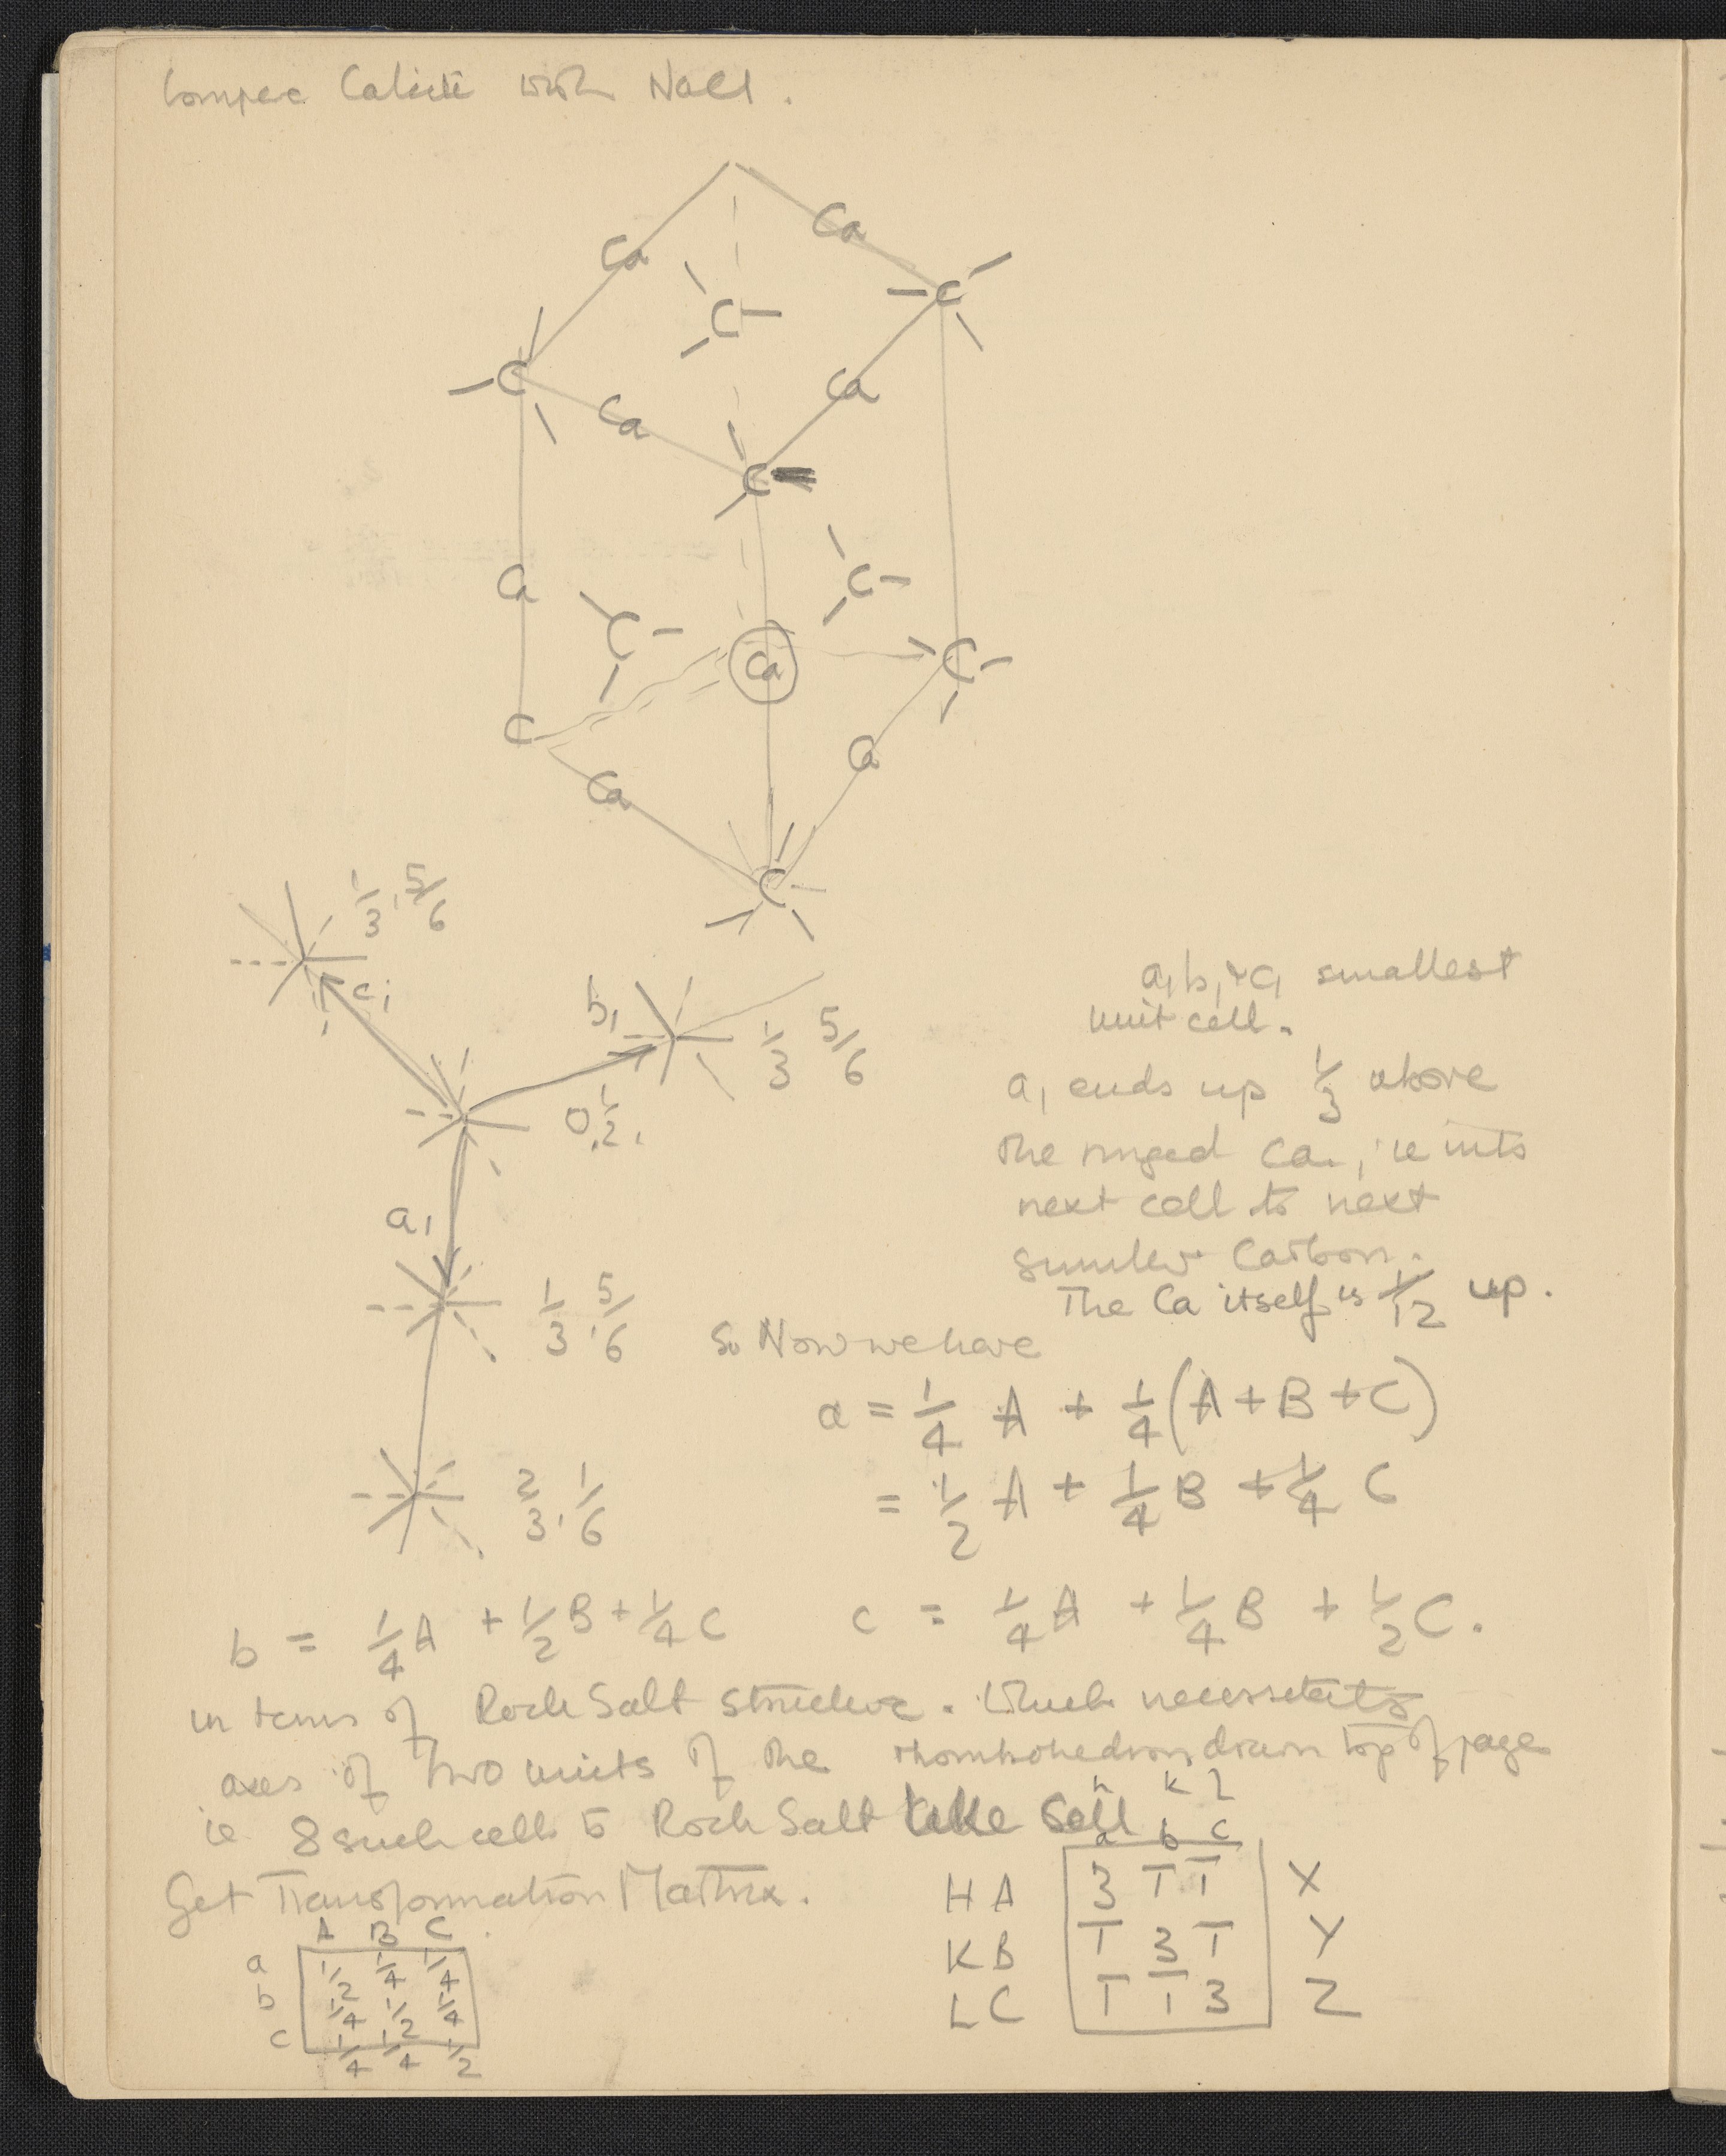 Compare Calcite with NaCl.
Ca
Ca
C
C
C
Ca
Ca
C
Ca
C
C
Ca
C
C
Ca
Ca
C
1/3, 5/6
c1
b1
1/3 5/6
0, 1/2,
a1
1/3, 5/6
2/3, 1/6
a1 b1 + c1 smallest
unit cell.
a1 ends up 1/3 above
the ringed Ca, ie into
next cell to next
similar Carbon.
The Ca itself is 1/12 up.
So Now we have
a = 1/4 A + 1/4 (A + B + C)
= 1/2 A + 1/4 B + 1/4 C
b = 1/4 A + 1/2 B + 1/4 C c = 1/4 A + 1/4 B + 1/2 C.
in terms of Rock Salt structure. Which necessitates
axes of two units of the rhombohedron drawn top of page
ie 8 such cells to Rock Salt like Cell
Get Transformation Matrix.
A B C
a 1/2 1/4 1/4
b 1/4 1/2 1/4
c 1/4 1/4 1/2
h k l
a b c
H A 3 1̄ 1̄ X
K B 1̄ 3 1̄ Y
L C 1̄ 1̄ 3 Z